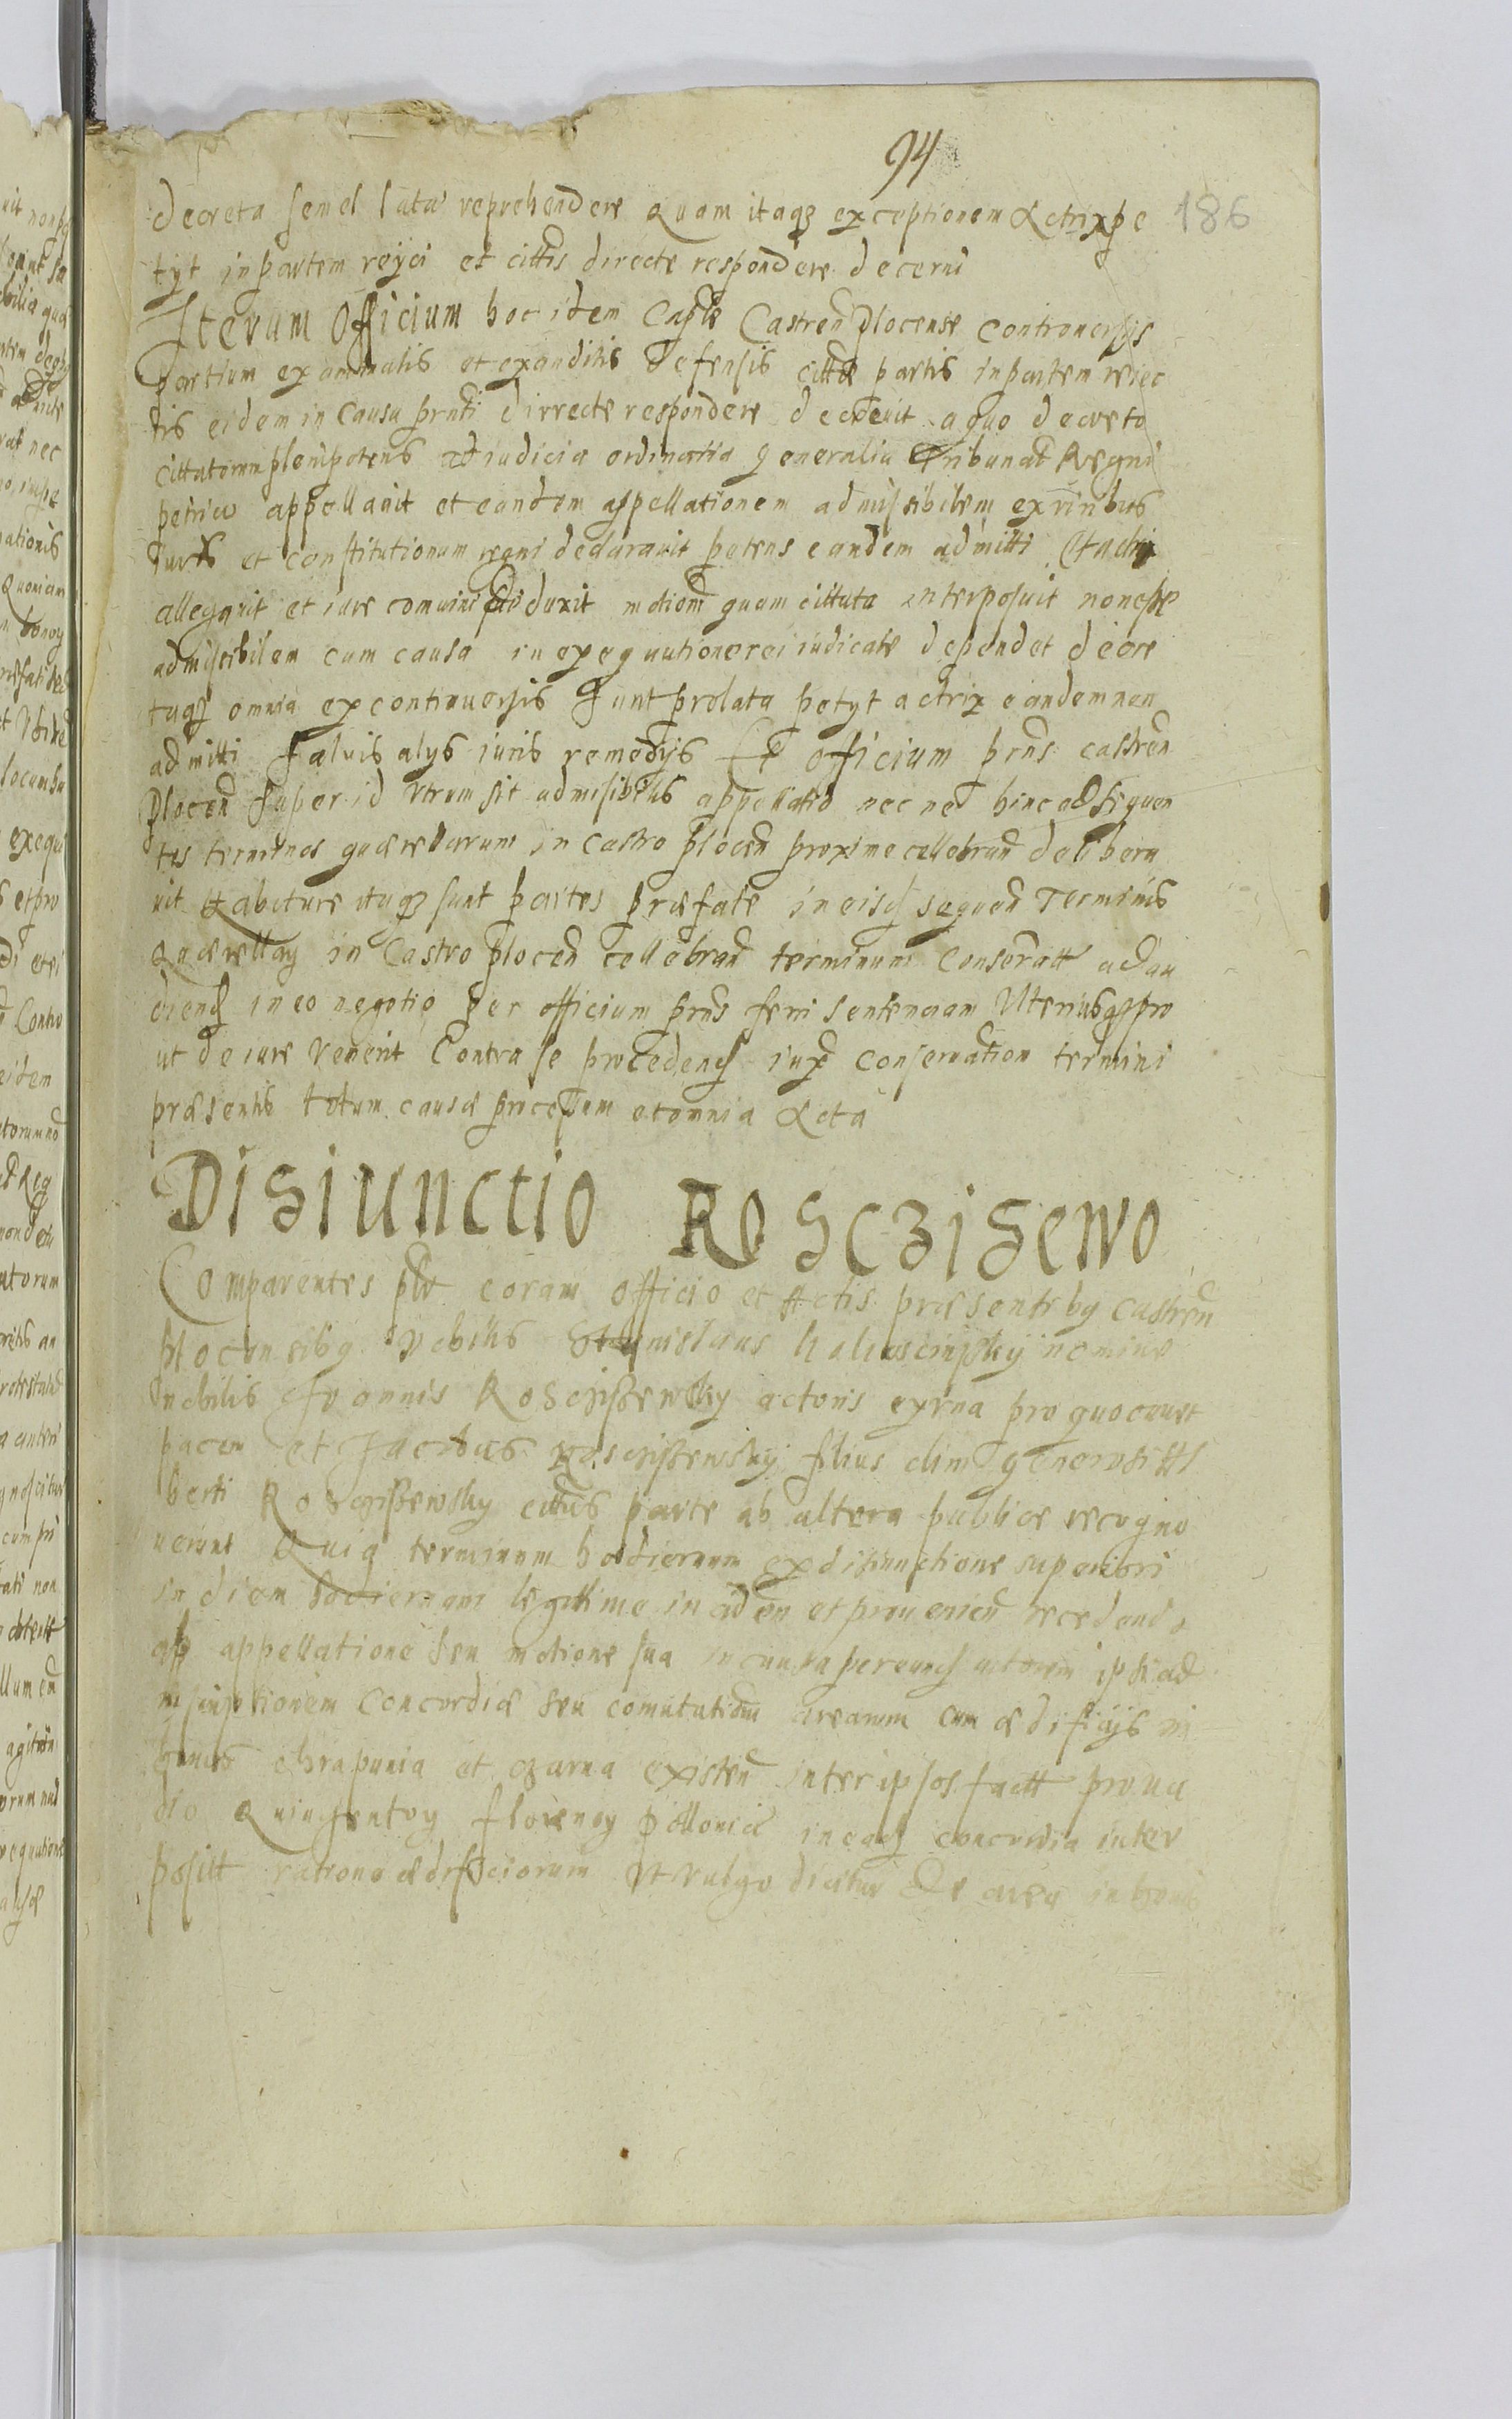 94
186
decreta semel lata reprehendere Quam itaqz exceptionem Actrix pe
tyt in partem reijci et cittis directe respondere decerni
Iterum Officium hoc idem Caple Castren Plocense Controuersijs
partium examinatis et exauditis defensis cittæ partis in partem reiec
tis eidem in Causa prnti dirrecte respondere decreuit a quo decreto
cittatorum plenipotens ad iudicia ordinaria generalia Tribunal Regni
petricō appellauit et eandem appellationem admissibilem ex viribus
iuris et constitutionum regni declarauit petens eandem admitti Et actrix
allegauit et iure conuinci duxit motionem quam cittata interposuit non esse
admissibilem cum causa in exequutione rei iudicate dependet decre
taqz omnia ex controuersijs sunt prolata petyt actrix eandem non
admitti saluis alys iuris remedijs Et officium prns castren
Plocen super id vtrum sit admisibilis appellatio nec ne hinc ad sequen
tes terminos quærelarum in Castro plocen proxime cellebrand delibera
uit Habiture itaqz sunt partes præfate in eisd sequen Terminis
Quærellar in Castro plocen cellebrand terminum Conseruatt ad au
diend in eo negotio per officium prns ferri sentenciam Vlteriusqz pro
ut de iure venerit Contra se procedend iuxa conseruation termini
præsentis totum causæ processum et omnia Acta
Disiunctio Rosczisewo
Comparentes plr coram officio et Actis præsentibg castren
plocensibg Nobilis Stanislaus nomine
Nobilis Ioannis Rosczissewsky actoris ex vna pro quo cauet
pacem et Jacobus Rosczissewsky filius olim generosi Al
berti Rosczissewsky cittus parte ab altera publice recogno
uerunt Quia terminum hodiernum ex disiunctione superiori
in diem hodiernam legittime inciden et prouenien recedendo
ab appellatione seu motione sua in causa per eund actorem ipsi ad
inscriptionem Concordiæ seu comutationis arearum cum ædificijs in
bonis chrapunia et czarna existen inter ipsos factt pro va
dio Quingentor florenor Pollonic in ead concordia inter
positt ratione ædificiorum vt vulgo dicitur de area in bonis